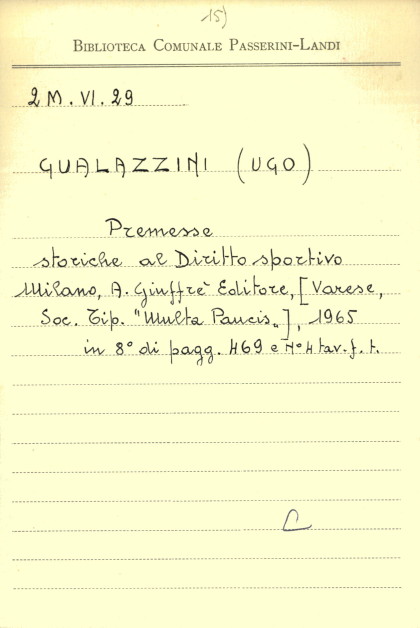 15)
BIBLIOTECA COMUNALE PASSERINI-LANDI
2 M. VI. 29
GUALAZZINI (UGO)
Premesse
storiche al Diritto sportivo
Milano, A. Giuffrè Editore, [Varese,
Soc. Tip. "Multa Paucis„], 1965
in 8° di pagg. 469 e N° 4 tav. f. t.